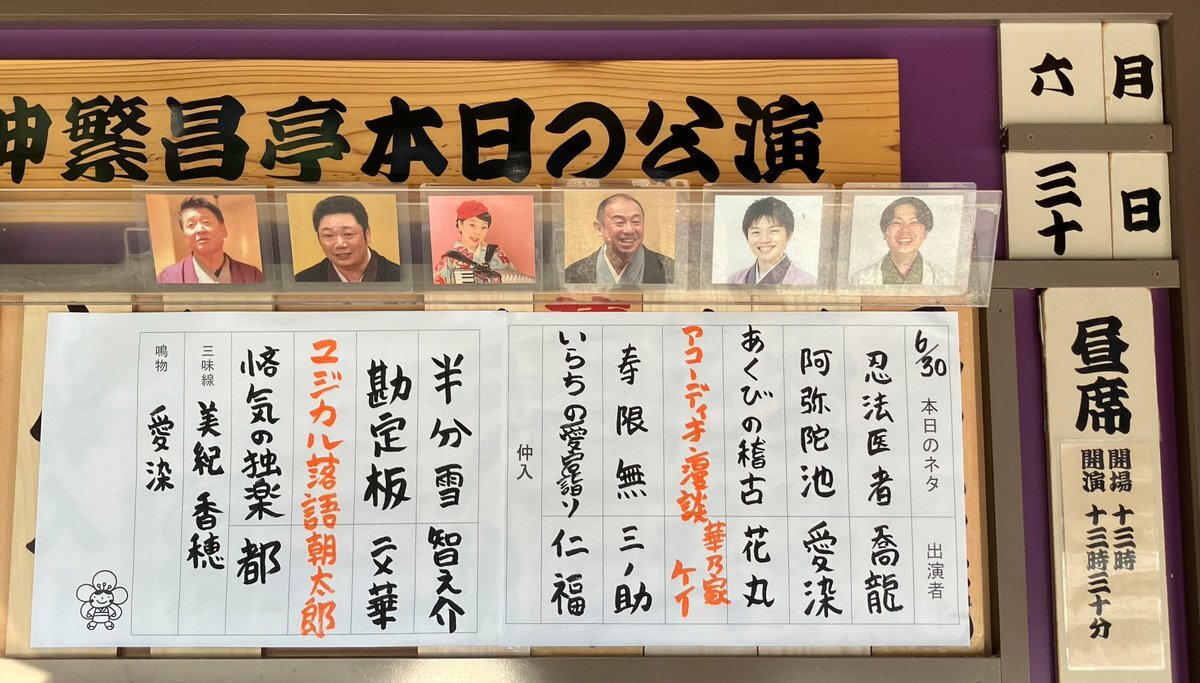 神繁昌亭本日の公演
六月
三十日
昼席
開場 十三時
開演 十三時三十分
6/30 本日のネタ 出演者
忍法医者 喬龍
阿弥陀池 愛染
あくびの稽古 花丸
アコーディオン漫談 華乃家ケイ
寿限無 三ノ助
いらちの愛宕詣り 仁福
仲入
半分雪 智之介
勘定板 文華
マジカル落語 朝太郎
悋気の独楽 都
三味線 美紀 香穂
鳴物 愛染